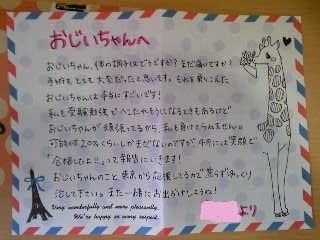 おじいちゃんへ
おじいちゃん、体の調子はどうですか？まだ痛いですか？
手術もとても大変だったと思います。それを乗りこえた
おじいちゃんは本当にすごいです！
私も受験勉強でへこたれそうになるときもあるけど
おじいちゃんが頑張ってるから、私も負けてられません。
可能性は20%くらいしかまだないのですが、4月には笑顔で
「合格したよ!!」って報告にいきます！
おじいちゃんのこと、東京から応援してるので焦らずゆっくり
治して下さい。また一緒にお出かけしようね！
Very wonderfully and more pleasantly.
We're happy in every respect.
より